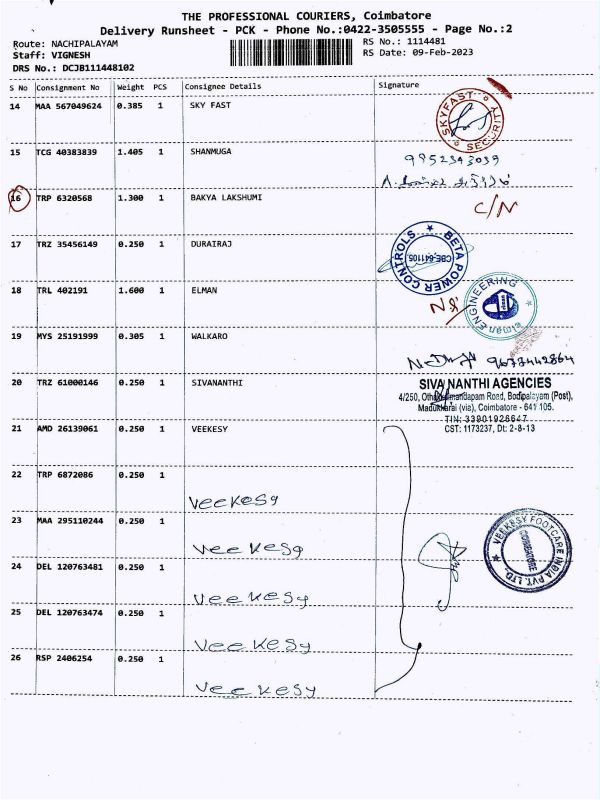 THE PROFESSIONAL COURIERS, Coimbatore
Delivery Runsheet - PCK - Phone No.:0422-3505555 - Page No.:2
Route: NACHIPALAYAM
RS No.: 1114481
Staff: VIGNESH
RS Date: 09-Feb-2023
DRS No.: DCJB111448102
S No Consignment No Weight PCS Consignee Details Signature
14 MAA 567049624 0.385 1 SKY FAST
SKYFAST SECURITY
15 TCG 40383839 1.405 1 SHANMUGA
9952343039
16 TRP 6320568 1.300 1 BAKYA LAKSHUMI
C/N
17 TRZ 35456149 0.250 1 DURAIRAJ
BETA POWER CONTROLS
CBE-641105
18 TRL 402191 1.600 1 ELMAN
ENGINEERING
19 MYS 25191999 0.305 1 WALKARO
9678442864
20 TRZ 61000146 0.250 1 SIVANANTHI
SIVA NANTHI AGENCIES
Road, Bodipalayam (Post),
Madukkarai (via), Coimbatore - 641 105.
TIN: 33901926647
CST: 1173237, Dt: 2-8-13
21 AMD 26139061 0.250 1 VEEKESY
22 TRP 6872086 0.250 1
Veekesy
23 MAA 295110244 0.250 1
Veekesy
VEEKESY FOOTCARE INDIA PVT. LTD.
COIMBATORE
24 DEL 120763481 0.250 1
Veekesy
25 DEL 120763474 0.250 1
Veekesy
26 RSP 2406254 0.250 1
Veekesy